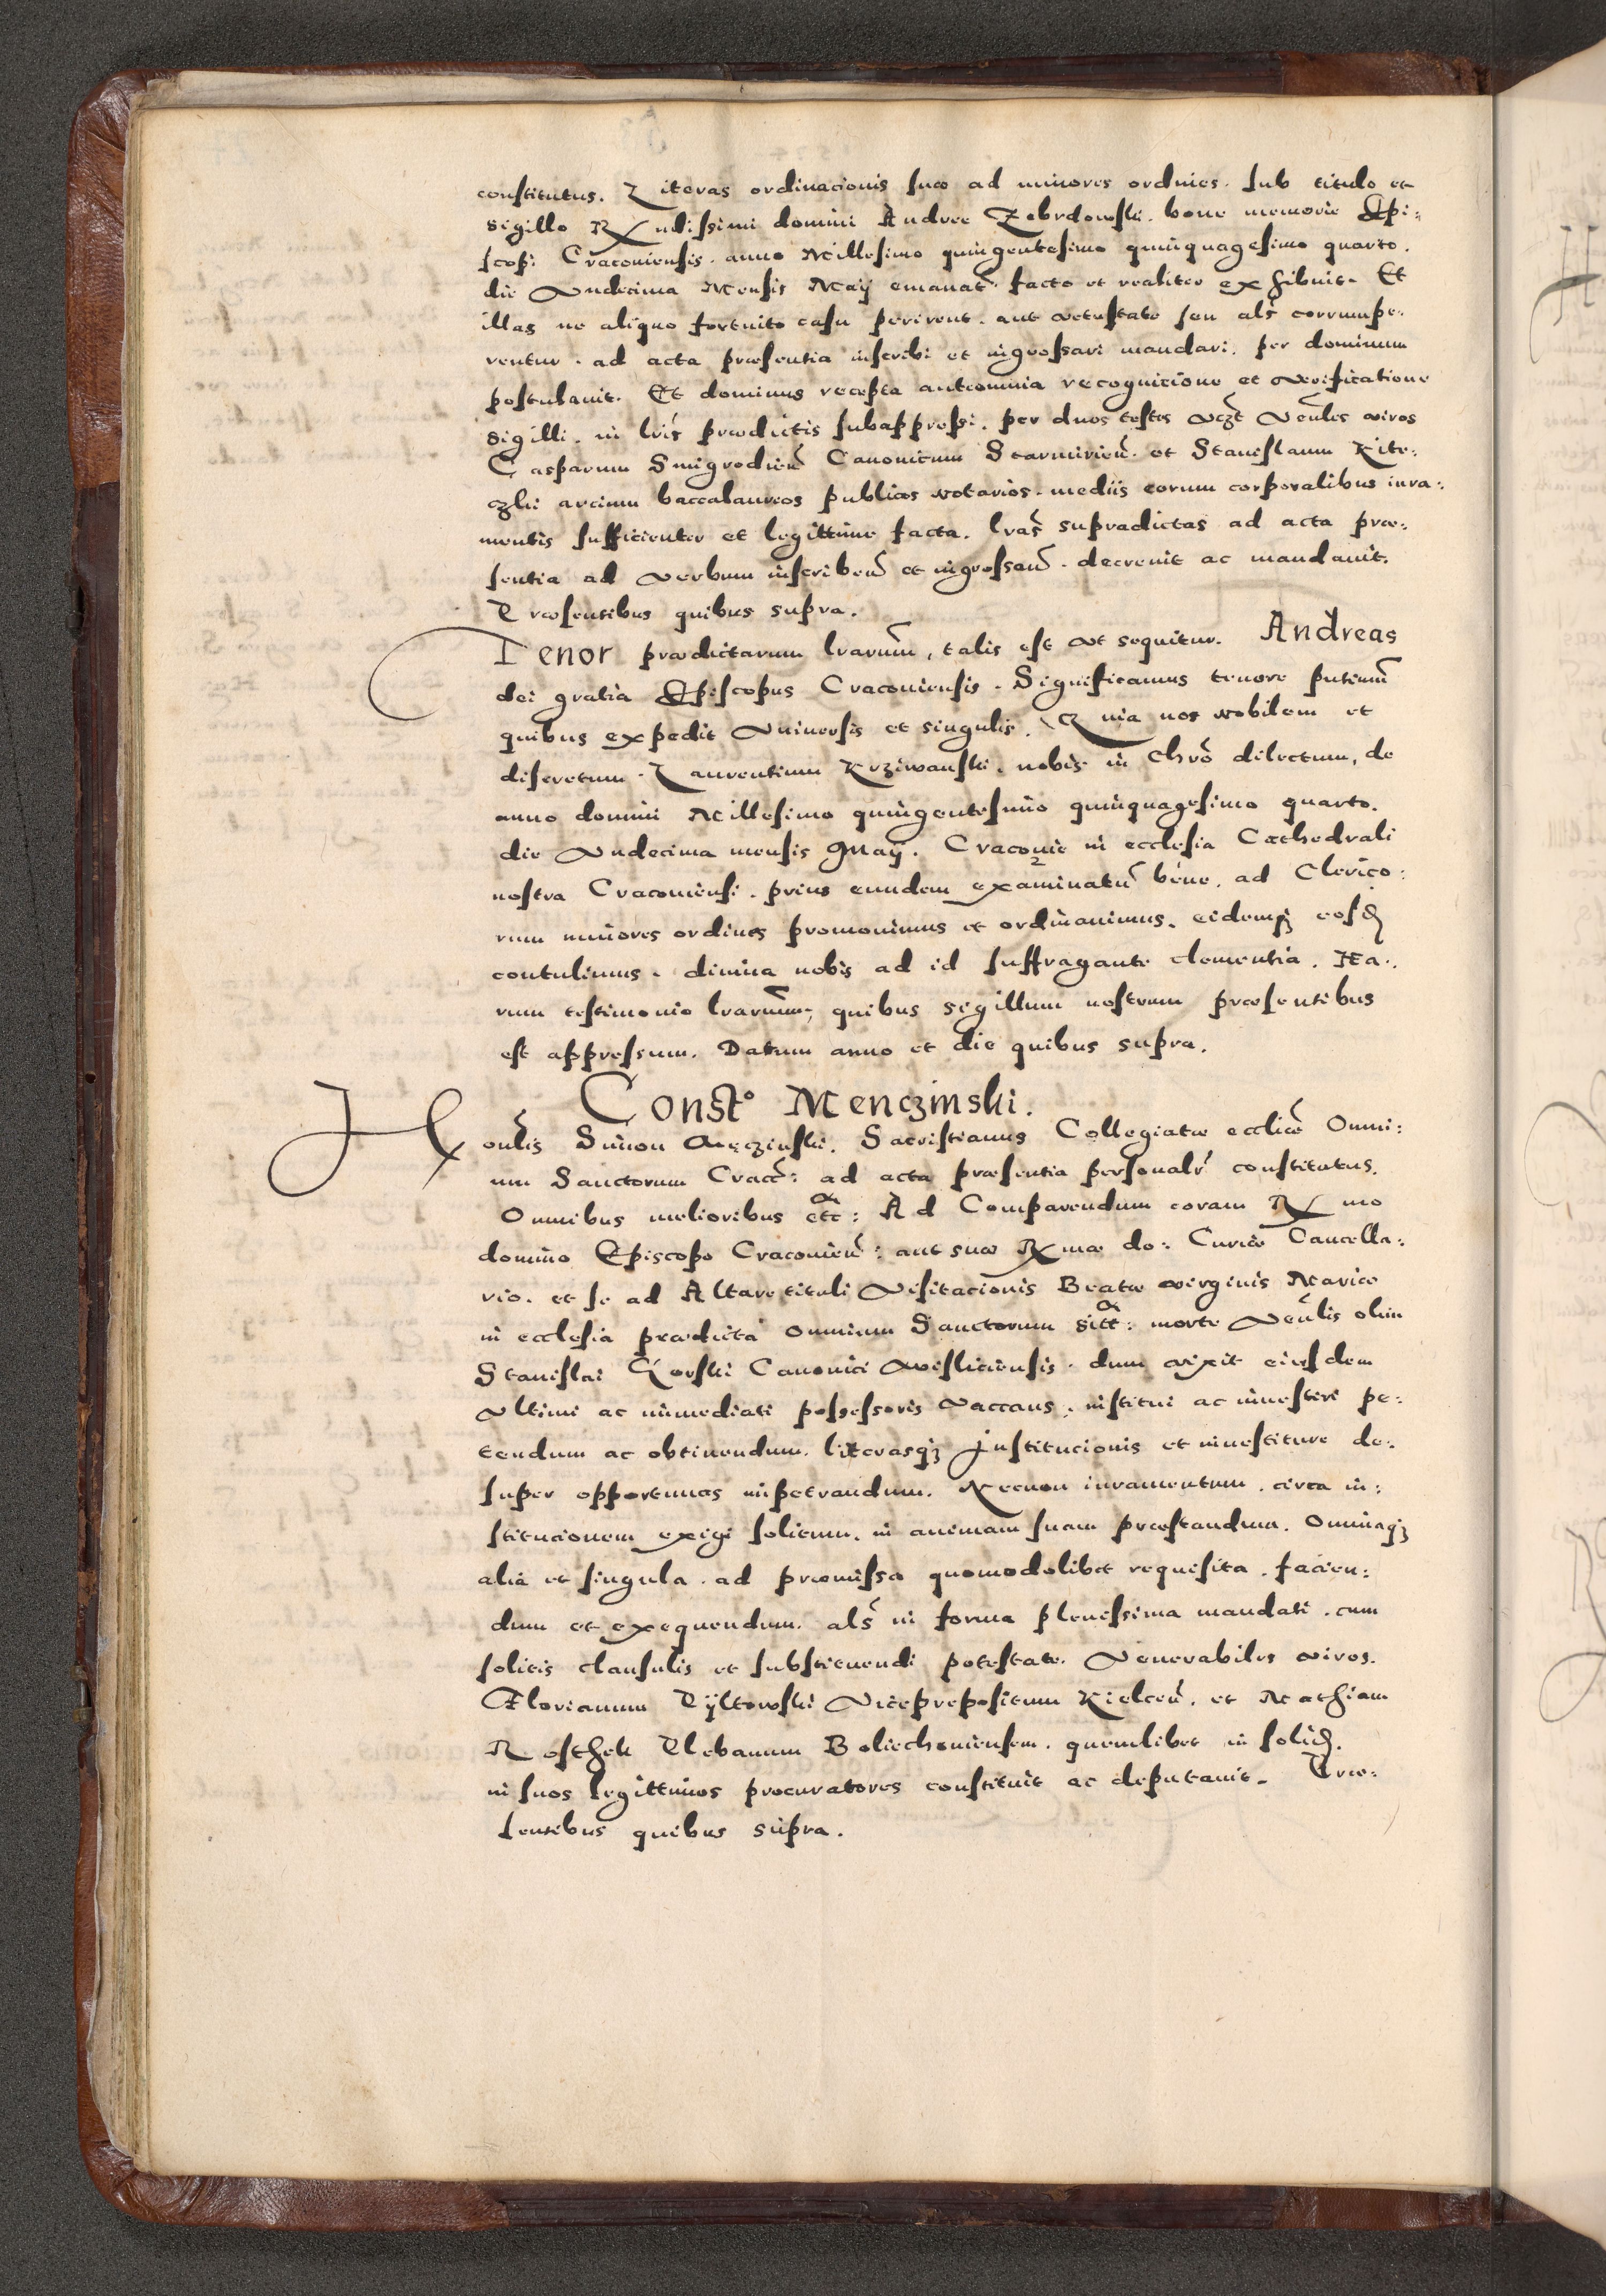 constitutus. Literas ordinacionis suæ ad minores ordines. sub titulo et
sigillo Rx ndissimi domini Andree Zebrdowski. bone memorie Epi:
scopi Cracoviensis. anno Millesimo quingentesimo quinquagesimo quarto.
die Vndecima Mensis Maij emanat̃. facto et realiter exhibuit. Et
illas ne aliquo fortuito casu perirent. aut vetustate seu al̃s corrumpe:
rentur. ad acta præsentia inscribi et ingrossari mandari. per dominum
postulavit. Et dominus recepta anteomnia recognicione et verificatione
sigilli. in l̃ris prædictis subappressi. per duos testes vcz̃t Veñles viros
Casparum Smigrodieñ Canonicum Scarmirieñ. et Stanislaum Kite:
czki arcium baccalaureos publicos notarios. mediis eorum corporalibus iura:
mentis sufficienter et legittime facta. l̃ras supradictas ad acta præ:
sentia ad verbum inscribeñ et ingrossañ. decrevit ac mandavit.
Præsentibus quibus supra.
Tenor prædictarum l̃rarum, talis est vt sequitur. Andreas
dei gratia Episcopus Cracoviensis. Significamus tenore p̃ntium
quibus expedit Vniversis et singulis. Quia nos nobilem et
discretum. Laurentium Krziwanski. nobis in Chr̃o dilectum, de
anno domini Millesimo quingentesimo quinquagesimo quarto.
die Vndecima mensis Maij. Cracovie in ecclesia Cathedrali
nostra Cracoviensi. prius eundem examinatũ bene. ad Clerico:
rum minores ordines promovimus et ordinavimus. eidemqz eosd
contulimus. divina nobis ad id suffragante clementia. Ha:
rum testimonio l̃rarum, quibus sigillum nostrum præsentibus
est appressum. Datum anno et die quibus supra.
Const͠o Menczinski.
Hoñlis Simon Męczinski. Sacristianus Collegiatæ eccliæ Omni:
um Sanctorum Cracc̃: ad acta præsentia personalr̃ constitutus.
Omnibus melioribus etc̃: Ad Comparendum coram Rx mo
domino Episcopo Cracovieñ: aut suæ Rx mæ do: Curiæ Cancella:
rio. et se ad Altare tituli Visitacionis Beatæ virginis Mariæ
in ecclesia prædicta omnium Sanctorum sitt̃: morte Veñlis olim
Stanislai Gorski Canonici Visliciensis. dum vixit eiusdem
Vltimi ac immediati possessoris vaccans. institui ac investiri pe:
tendum ac obtinendum. literasqz Institucionis et investiture de:
super opportunas impetrandum. Necnon iuramentum. circa in:
stitucionem exigi solitum. in animam suam præstandum. Omniaqz
alia et singula. ad præmissa quomodolibet requisita. facien:
dum et exequendum. al̃s in forma plenissima mandati. cum
solitis clausulis et substituendi potestate. Venerabiles viros.
Florianum Pyltowski Viceprepositum Kielceñ. et Mathiam
Rosthek Plebanum Boliechoviensem. quemlibet in solid.
in suos legittimos procuratores constituit ac deputavit. Præ:
sentibus quibus supra.